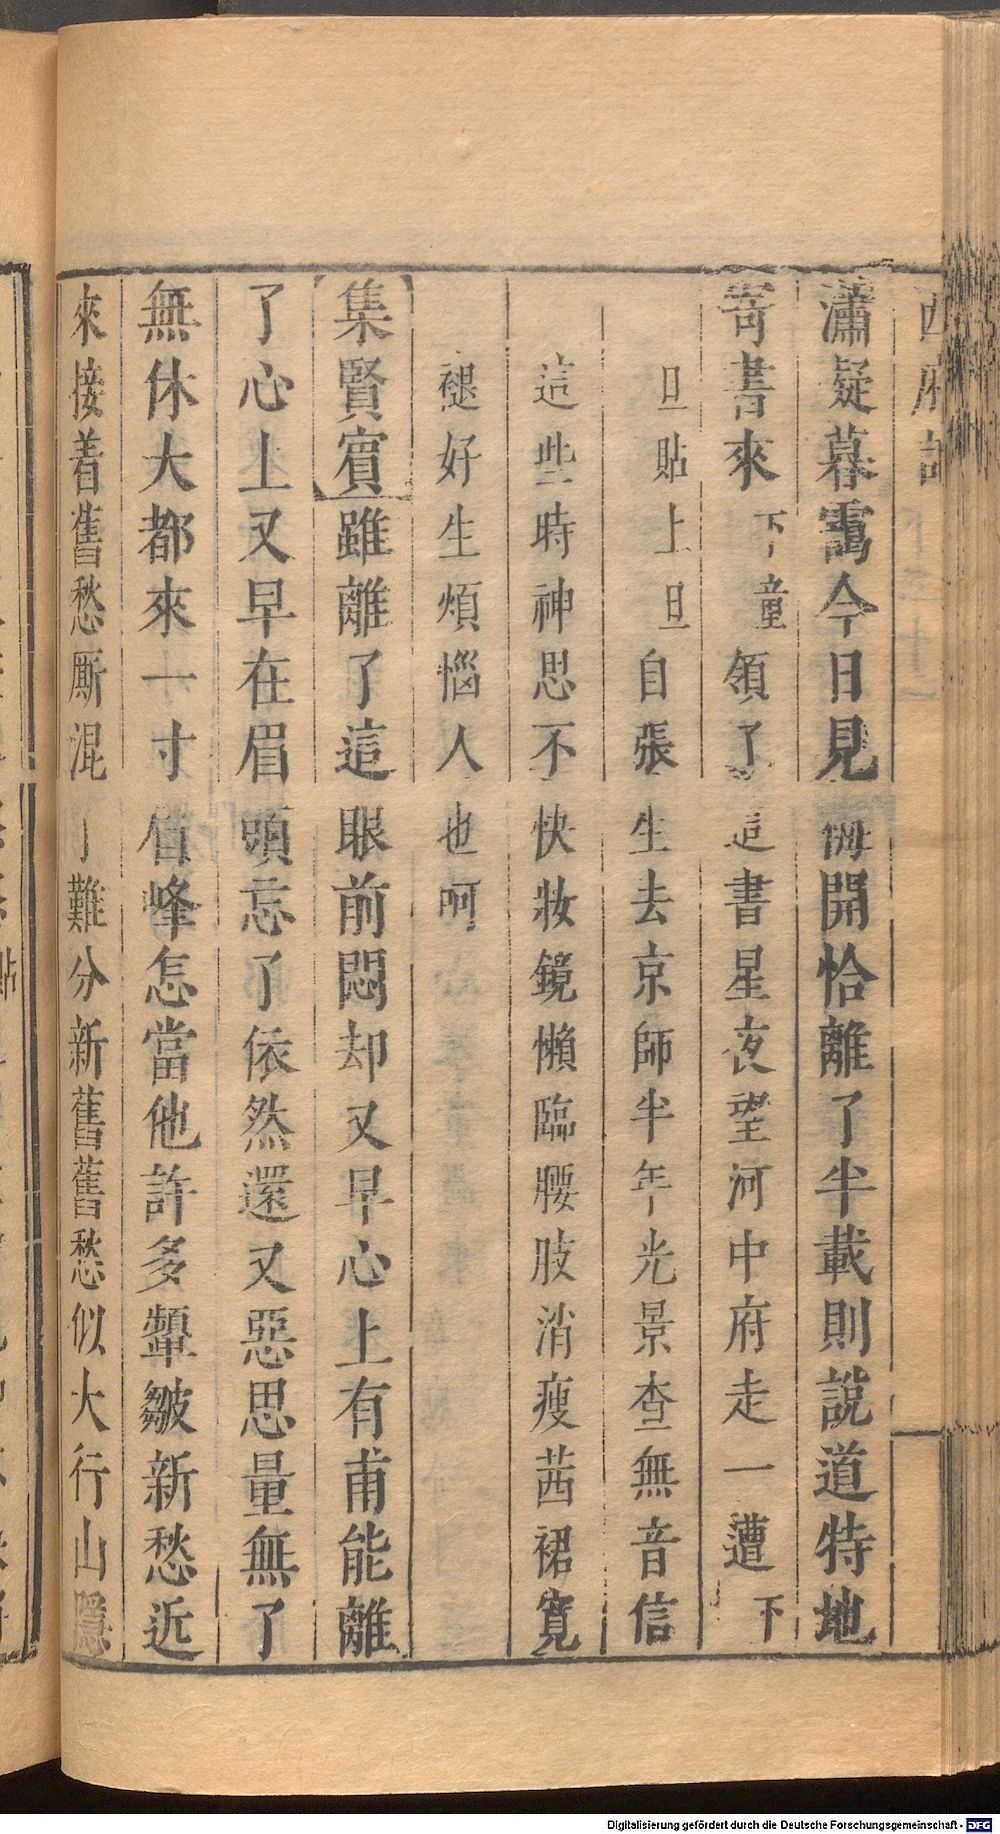 瀟疑暮靄今日見梅開恰離了半載則說道特地
寄書來下童領了這書星夜望河中府走一遭下
旦貼上旦自張生去京師半年光景查無音信
這些時神思不快妝鏡懶臨腰肢消瘦茜裙寬
褪好生煩惱人也呵
集賢賓雖離了這眼前悶却又早心上有甫能離
了心上又早在眉頭忘了依然還又惡思量無了
無休大都來一寸眉峰怎當他許多顰皺新愁近
來接着舊愁厮混了難分新舊舊愁似大行山隱
Digitalisierung gefördert durch die Deutsche Forschungsgemeinschaft - DFG